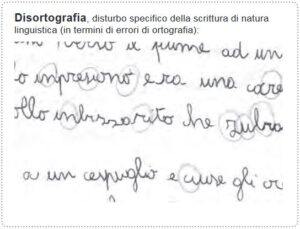 Disortografia, disturbo specifico della scrittura di natura
linguistica (in termini di errori di ortografia):
verso il fiume ad un
impresiono era una
ollo inbizzarito che zubra
a un cespuglio e cuase gli